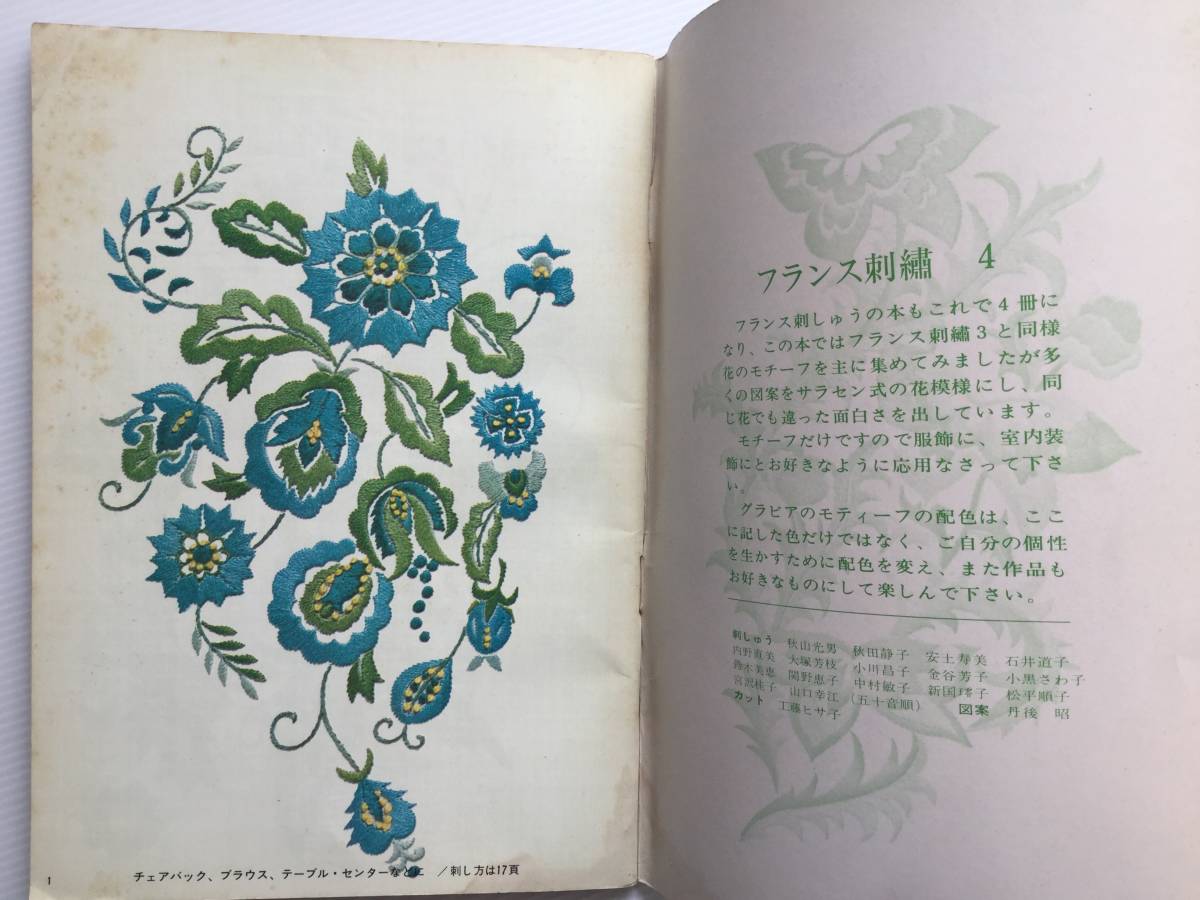 チェアバック、ブラウス、テーブル・センターなどに ／刺し方は17頁
1
フランス刺繡 4
フランス刺しゅうの本もこれで4冊に
なり、この本ではフランス刺繡3と同様
花のモチーフを主に集めてみましたが多
くの図案をサラセン式の花模様にし、同
じ花でも違った面白さを出しています。
モチーフだけですので服飾に、室内装
飾にとお好きなように応用なさって下さ
い。
グラビアのモティーフの配色は、ここ
に記した色だけではなく、ご自分の個性
を生かすために配色を変え、また作品も
お好きなものにして楽しんで下さい。
刺しゅう 秋山光男 秋田静子 安土寿美 石井道子
内野直美 大塚芳枝 小川昌子 金谷芳子 小黒さわ子
鈴木美恵 関野恵子 中村敏子 新国璋子 松平順子
宮沢桂子 山口幸江 (五十音順) 図案 丹後 昭
カット 工藤ヒサ子